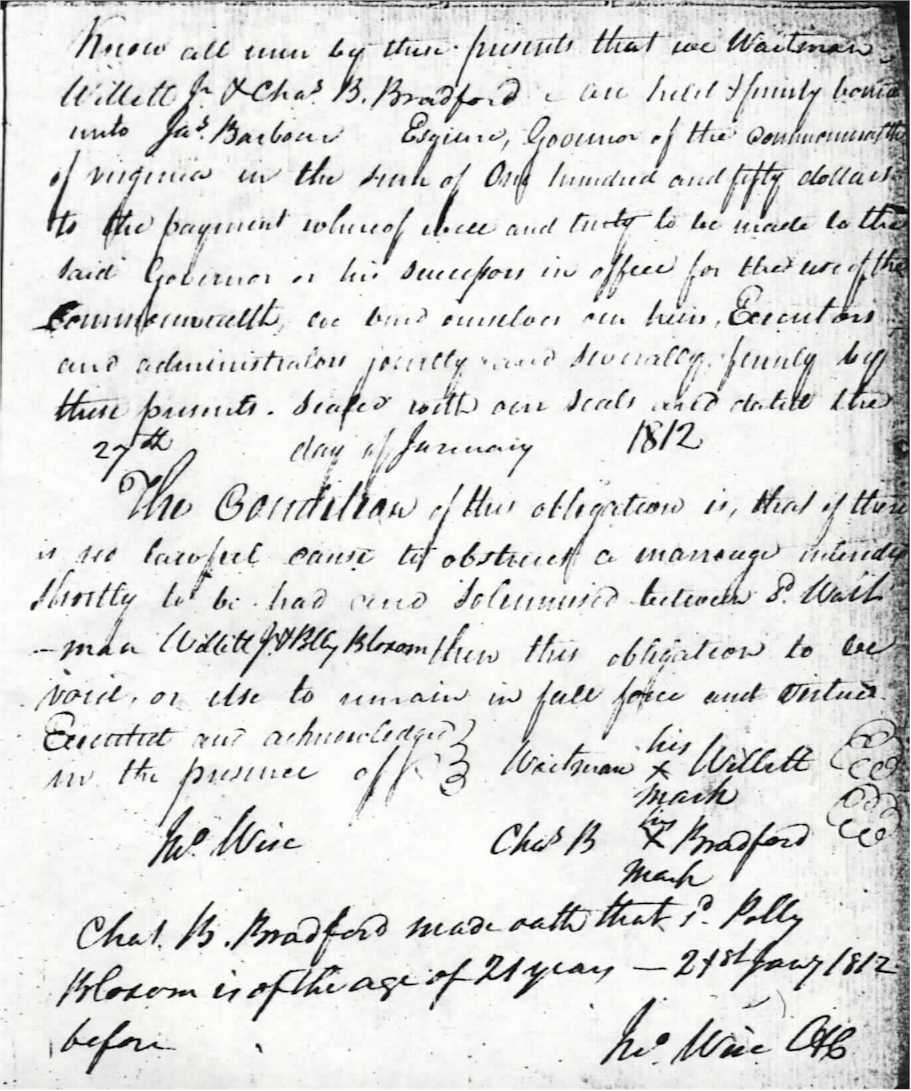 Know all men by these presents that we Waitman
Willett Jr & Chas. B. Bradford are held & firmly bound
unto Jas. Barbour Esquire, Governor of the commonwealth
of virginia in the sum of One hundred and fifty dollars
to the payment whereof well and truly to be made to the
said Governor or his successors in office for the use of the
Commonwealth, we bind ourselves our heirs, Executors
and administrators jointly and severally firmly by
these presents. Sealed with our seals and dated the
27th day of January 1812
The Condition of this obligation is, that if there
is no lawful cause to obstruct a marriage intended
shortly to be had and Solemnised between sd. Wait
-man Willett Jr & Polly Bloxom then this obligation to be
void, or else to remain in full force and virtue.
Executed and acknowledged
in the presence of
Waitman his X mark Willett
Jno. Wise
Chas B his X mark Bradford
Chas. B. Bradford made oath that sd. Polly
Bloxom is of the age of 21 years — Jany 1812
before
Jno. Wise